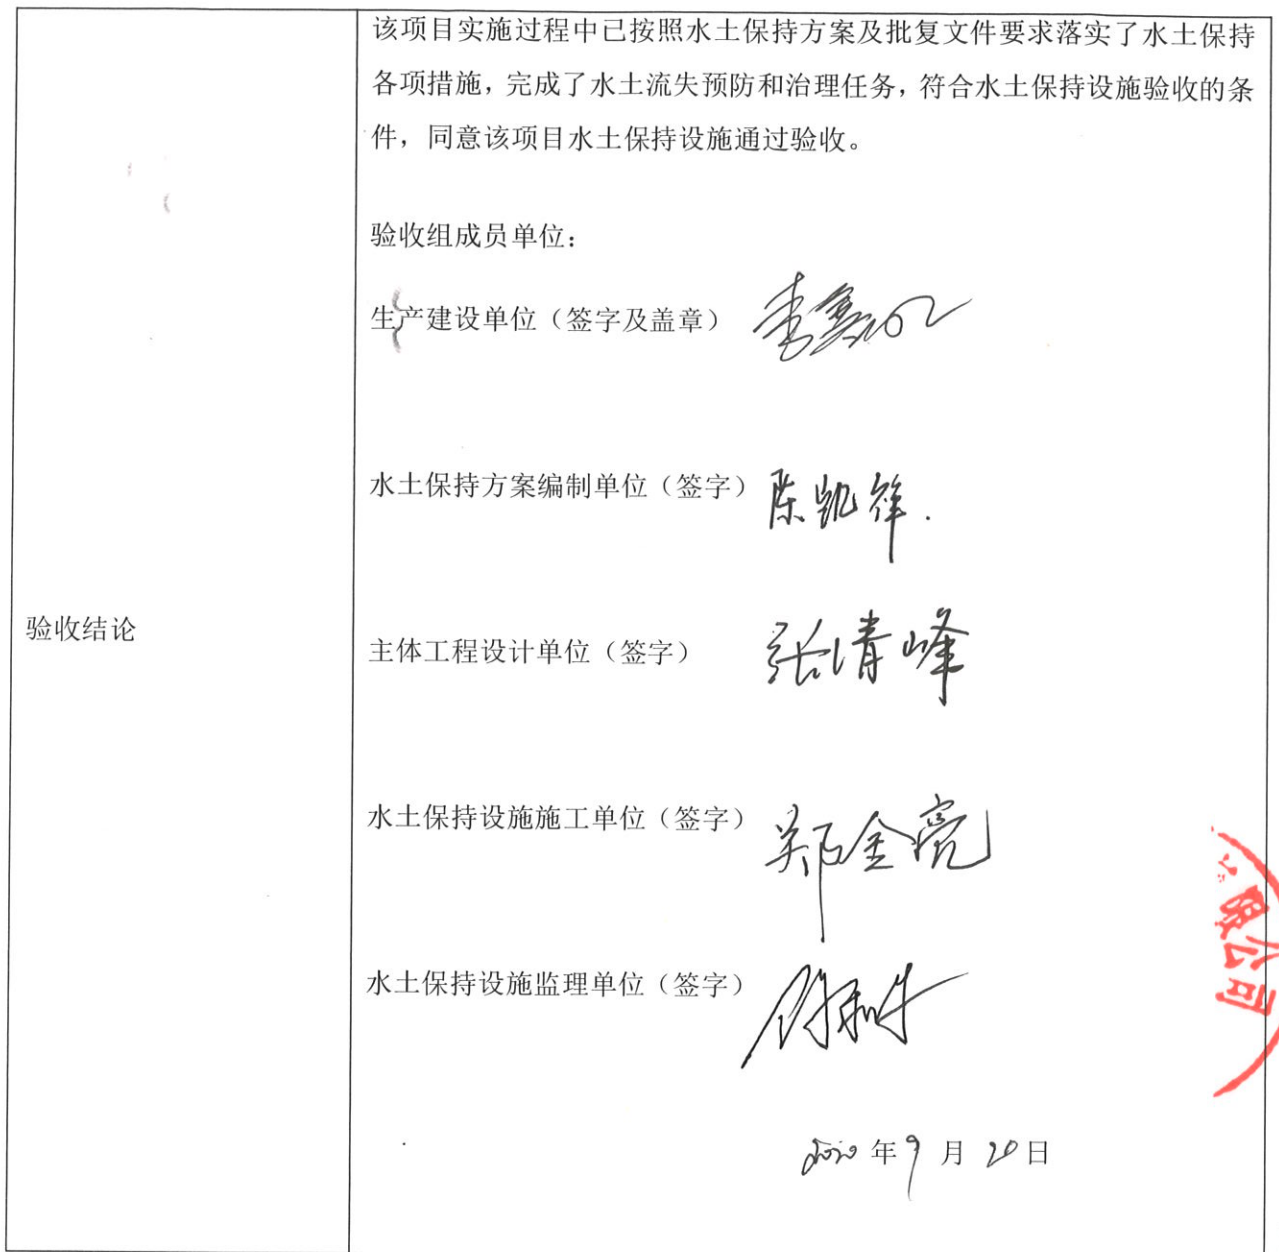 该项目实施过程中已按照水土保持方案及批复文件要求落实了水土保持
各项措施，完成了水土流失预防和治理任务，符合水土保持设施验收的条
件，同意该项目水土保持设施通过验收。
验收组成员单位：
生产建设单位（签字及盖章）
水土保持方案编制单位（签字）陈凯祥.
验收结论
主体工程设计单位（签字） 张清峰
水土保持设施施工单位（签字） 郑金亮
水土保持设施监理单位（签字）
2020年9月20日
限公司